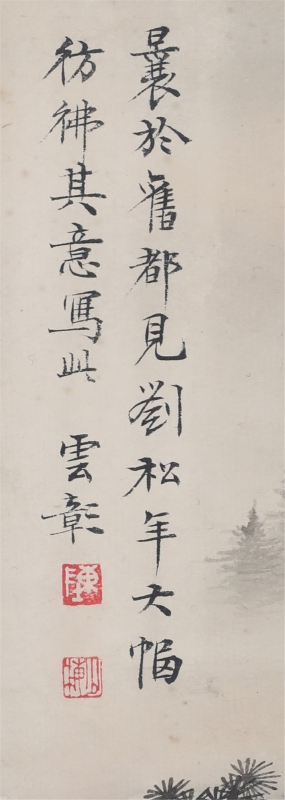 曩於舊都見劉松年大幅
彷彿其意寫此 雲彰
陳